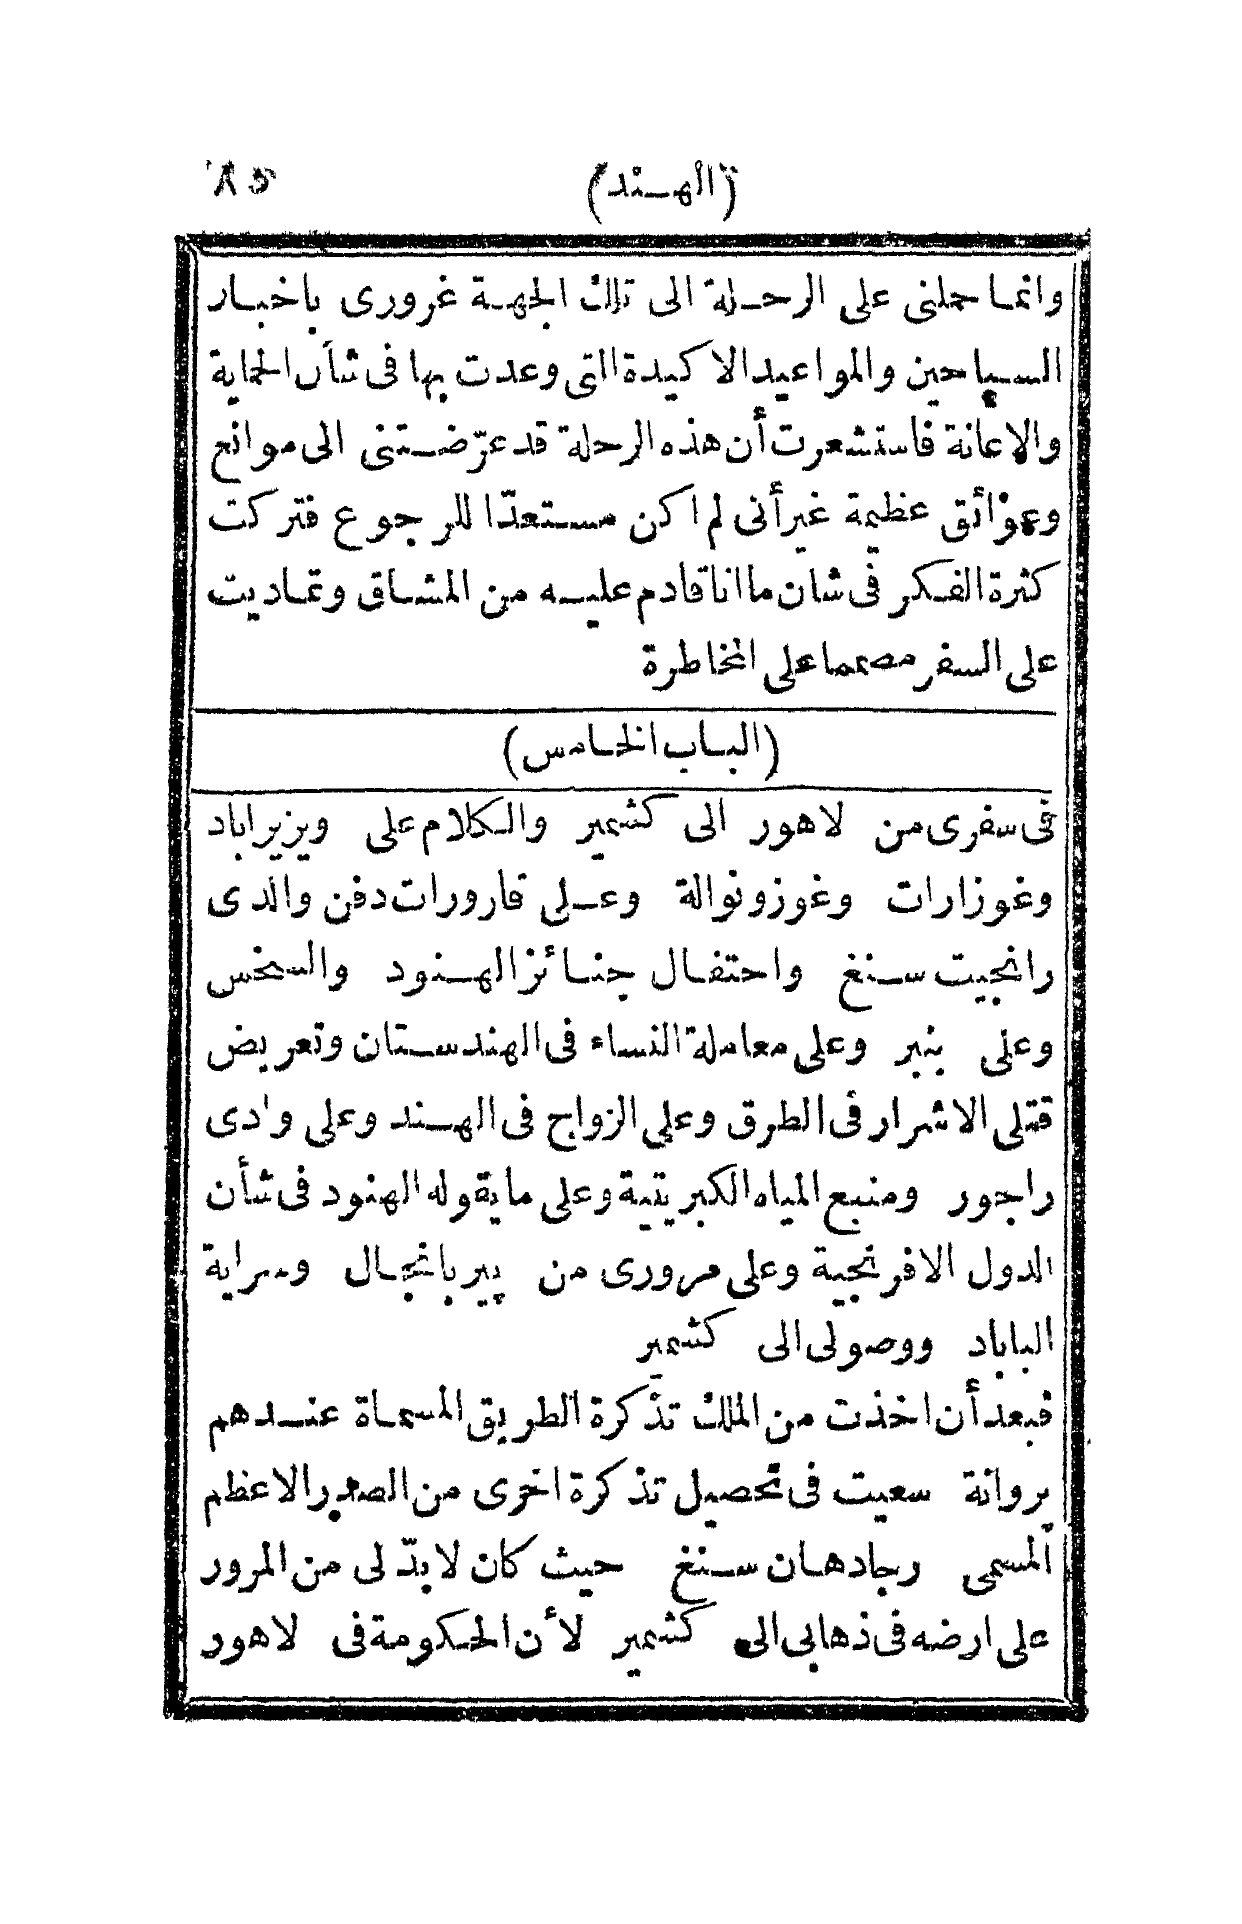 (الهند) ٨٥
وانما حملنى على الرحلة الى تلك الجهة غرورى باخبار
السياحين والمواعيد الاكيدة التى وعدت بها فى شأن الحماية
والاعانة فاستشعرت أن هذه الرحلة قد عرّضتنى الى موانع
وعوائق عظيمة غير أنى لم اكن مستعدّا للرجوع فتركت
كثرة الفكر فى شان ما انا قادم عليه من المشاق وتماديت
على السفر مصمما على المخاطرة
(الباب الخامس)
فى سفرى من لاهور الى كشمير والكلام على ويزيراباد
وغوزارات وغوزونوالة وعلى قارورات دفن والدى
رانجيت سنغ واحتفال جنائز الهنود والسخس
وعلى بنبر وعلى معاملة النساء فى الهندستان وتعريض
قتلى الاشرار فى الطرق وعلى الزواج فى الهند وعلى وادى
راجور ومنبع المياه الكبريتية وعلى ما يقوله الهنود فى شأن
الدول الافرنجية وعلى مرورى من پيربانجال وسراية
الباباد ووصولى الى كشمير
فبعد أن اخذت من الملك تذكرة الطريق المسماة عندهم
بروانة سعيت فى تحصيل تذكرة اخرى من الصدر الاعظم
المسمى رجادهان سنغ حيث كان لابدّ لى من المرور
على ارضه فى ذهابى الى كشمير لأن الحكومة فى لاهور